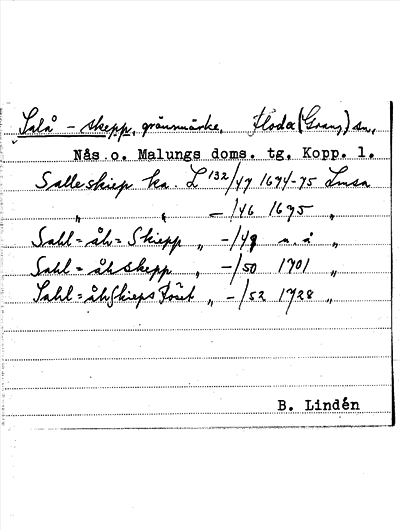 Salå - skepp, gränsmärke, Floda (Grang) sn,
Nås o. Malungs doms. tg. Kopp. l.
Salleskiep ka. L 132/47 1674-75 Lmsa
" " -/46 1675 "
Sahl=åh=Skiepp " -/49 u.å "
Sahl=åhskepp " -/50 1701 "
Sahl=åhskieps " -/52 1728 "
B. Lindén